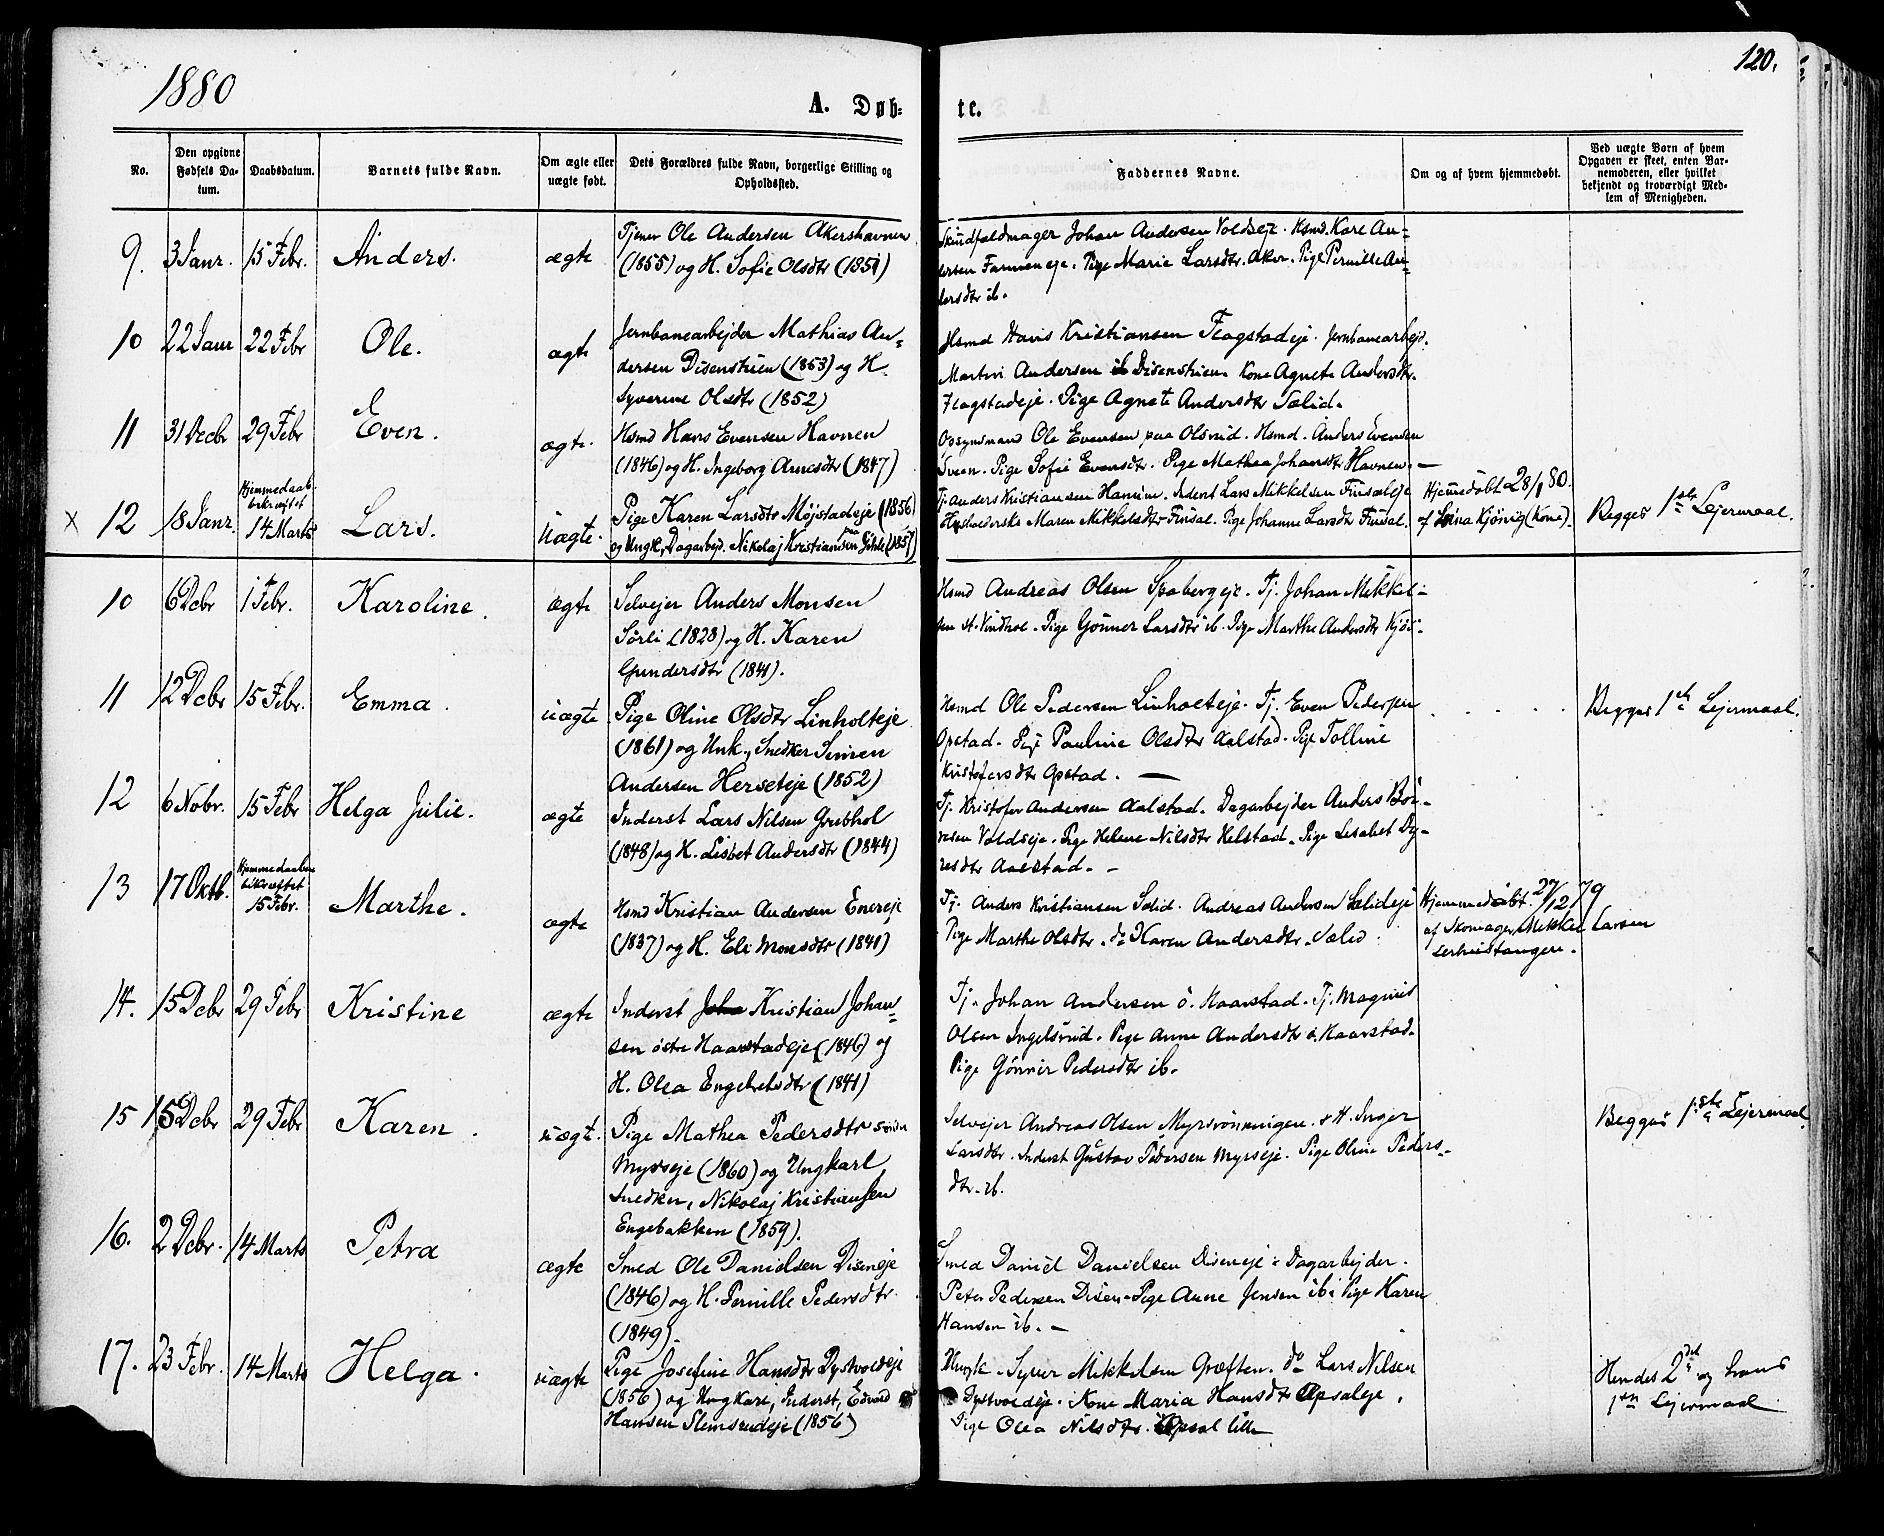 1880
A. Døb=
te.
120.
No.
Den opgivne Fødsels Da-tum.
Daabsdatum.
Barnets fulde Navn.
Om ægte eller uægte født.
Dets Forældres fulde Navn, borgerlige Stilling og Opholdssted.
Faddernes Navne.
Om og af hvem hjemmedøbt.
Ved uægte Børn af hvem Opgaven er skeet, enten Bar-nemoderen, eller hvilket bekjendt og troværdigt Med-lem af Menigheden.
9. 3 Janr. 15 Febr. Anders. ægte
Tjener Ole Andersen Akershavnen
(1855) og H. Sofie Olsdtr (1851)
Skindfældmager Johan Andersen Voldseje. Hsmd. Kare An=
dersen Farmeneje. Pige Marie Larsdtr. Aker. Pige Pernille An=
dersdtr ib.
10 22 Janr 22 Febr Ole. ægte
Jernbanearbejder Mathias An=
dersen Disenstuen (1853) og H.
Syverine Olsdtr (1852)
Hsmd Hans Kristiansen Flagstadeje. Jernbanearbejd.
Martin Andersen Disenstuen. Kone Agnete Andersdtr.
Flagstadeje. Pige Agnete Andersdtr Sælid.
11 31 Decbr 29 Febr Even. ægte.
Hsmd Hans Evensen Havnen
(1846) og H. Ingeborg Arnesdtr (1847)
Opsynsmand Ole Evensen paa Olsrud. Hsmd. Anders Evensen
Sveen. Pige Sofie Evensdtr. Pige Mathea Johansdtr Havnen. —
x 12 18 Janr. Hjemmedaab. bekræftet 14 Marts Lars. Uægte.
Pige Karen Larsdtr Møjstadeje (1856)
og Ungk, Dagarbejd. Nikolaj Kristiansen (1857)
Tj. Anders Kristiansen Hanum. Inderst Lars Mikkelsen Finsaleje
Husholderske Maren Mikkelsdtr Finsal. Pige Johanne Larsdtr Finsal.
Hjemmedøbt 28/1 80.
af Stina Kjønvig (Kone).
Begges 1ste Lejermaal.
10 6 Dcbr 1 Febr. Karoline. ægte
Selvejer Anders Monsen
Sörli (1828) og H. Karen
Gundersdtr (1841).
Hsmd Andreas Olsen Spabergeje. Tj. Johan Mikkel=
sen N. Vindhol. Pige Gönner Larsdtr ib. Pige Marthe Andersdtr
11 12 Dcbr 15 Febr. Emma. uægte
Pige Oline Olsdtr Linholteje
(1861) og Unk., Snedker Simen
Andersen Herseteje (1852)
Hsmd Ole Pedersen Linholteje. Tj. Even Pedersen
Opstad. Pige Pauline Olsdtr Aalstad. Pige Tolline
Kristofersdtr Opstad. —
Begges 1ste Lejermaal.
12 6 Nobr. 15 Febr Helga Julie. ægte
Inderst Lars Nilsen Grubhol
(1848) og H. Lisbet Andersdtr (1844)
Tj. Kristofer Andersen Aalstad. Dagarbejder Anders Bör=
resen Voldseje. Pige Helene Nilsdtr Helstad. Pige Lisabet By=
resdtr Aalstad. —
13 17 Oktb. Hjemmedaaben bekræftet 15 Febr. Marthe. ægte
Hsmd Kristian Andersen Enereje
(1837) og H. Eli Monsdtr (1841)
Tj. Anders Kristiansen Sælid. Andreas Andersen Sælideje
Pige Marthe Olsdtr. do Karen Andersdtr. Sælid.
Hjemmedøbt. 27/12 79
af Skomager Mikkel Larsen
14. 15 Dcbr 29 Febr Kristine ægte
Inderst Kristian Johan=
sen östre Haarstadeje (1846) og
H. Olea Engebretsdtr (1841)
Tj. Johan Andersen ö. Kaarstad. Tj. Magnus
Olsen Ingelsrud. Pige Anne Andersdtr ö. Kaarstad.
Pige Gönner Pedersdtr ib.
15 15 Dcbr 29 Febr Karen. uægt.
Pige Mathea Pedersdtr Søndre
Myrseje (1860) og Ungkarl,
Snedker, Nikolaj Kristiansen
Engebakken (1859).
Selvejer Andreas Olsen Myrsrönningen. & H. Inger
Larsdtr. Inderst Gustav Pedersen Myrseje. Pige Oline Peders=
dtr. ib.
Begges 1ste Lejermaal.
16. 2 Dcbr. 14 Marts Petra ægte
Smed Ole Danielsen Diseneje
(1846) og H. Pernille Pedersdtr.
(1849).
Smed Daniel Danielsen Diseneje. Dagarbejder.
Peter Pedersen Disen. Pige Anne Jensen ib. Pige Karen
Hansen ib. —
17. 23 Febr. 14 Marts Helga. uægte
Pige Josefine Hansdtr Dystvoldeje
(1856) og Ungkarl, Inderst, Edvard
Hansen Slemsrudeje (1856)
Ungk. Syver Mikkelsen Græften. do Lars Nilsen
Dystvoldeje. Kone Maria Hansdtr Opsaleje.
Pige Olea Nilsdtr. Opsal lille
Hendes 2det og hans
1ste Lejermaal.